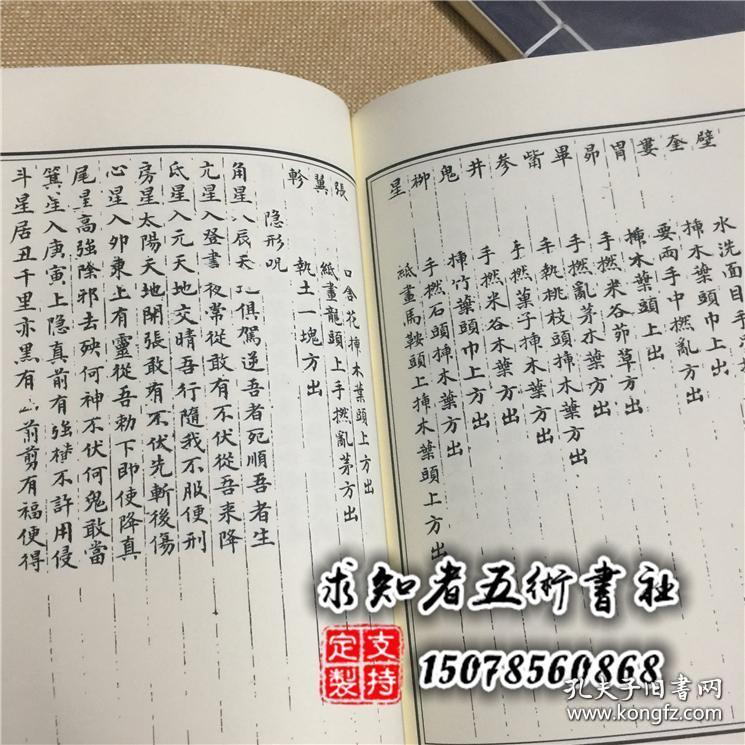 壁 水洗面目手
奎 挿木葉頭巾上方出
婁 要兩手中撚亂方出
胃 挿木葉頭上出
昴 手撚米谷茆草方出
畢 手撚亂茅木葉方出
觜 手執桃枝頭挿木葉方出
參 手撚菓子挿木葉方出
井 手撚米谷木葉方出
鬼 挿竹葉頭巾上方出
柳 手撚石頭挿木葉方出
星 紙畫馬鞍頭上挿木葉頭上方出
張 口含花挿木葉頭上方出
翼 紙畫龍頭上手撚亂茅方出
軫 執土一塊方出
隐形呪
角星入辰天 俱駕逆吾者死順吾者生
亢星入登書夜常從敢有不伏從吾来降
氐星入元天地交晴吾行隨我不服便刑
房星太陽天地開張敢有不伏先斬後傷
心星入夘東上有靈從吾勅下即使降真
尾星高強除邪去殃何神不伏何鬼敢當
箕星入庚寅上隐真前有強 不許用侵
斗星居丑千里亦黑有 前剪有福便得
求知者五術書社
支持定製
15078560868
孔夫子旧書网
www.kongfz.com